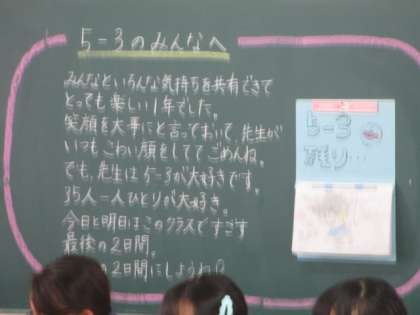 5-3のみんなへ
みんなといろんな気持ちを共有できて
とっても楽しい1年でした。
笑顔を大事にと言っておいて、先生が
いつもこわい顔をしてて ごめんね。
でも、先生は5-3が大好きです。
35人一人ひとりが大好き。
今日と明日はこのクラスですごす
最後の2日間。
の2日間にしようね
5-3
残り…